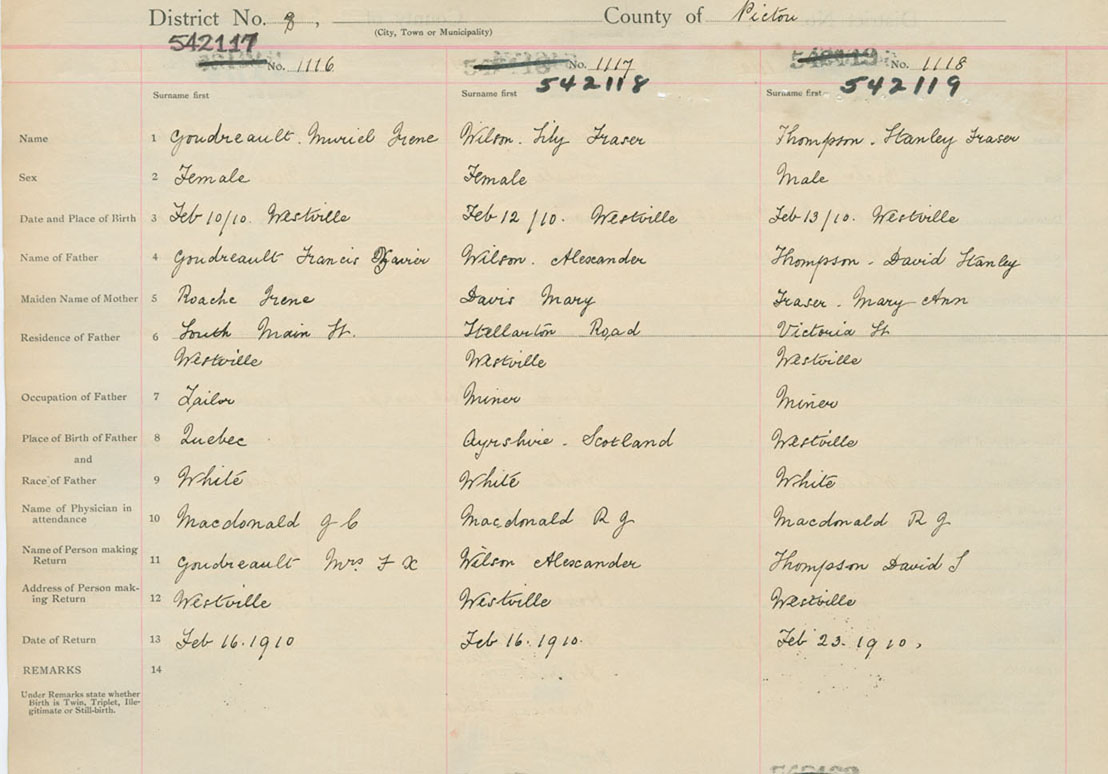 District No. 8, County of Pictou
(City, Town or Municipality)
542117
No. 1116 No. 1117 No. 1118
542118 542119
Surname first Surname first Surname first
Name 1 Goudreault. Muriel Irene Wilson. Lily Fraser Thompson. Stanley Fraser
Sex 2 Female Female Male
Date and Place of Birth 3 Feb 10/10. Westville Feb 12/10. Westville Feb 13/10. Westville
Name of Father 4 Goudreault Francis Xavier Wilson. Alexander Thompson - David Stanley
Maiden Name of Mother 5 Roache Irene Davis Mary Fraser. Mary Ann
Residence of Father 6 South Main St. Stellarton Road Victoria St
Westville Westville Westville
Occupation of Father 7 Tailor Miner Miner
Place of Birth of Father 8 Quebec Ayrshire - Scotland Westville
and
Race of Father 9 White White White
Name of Physician in attendance 10 Macdonald J C Macdonald R J Macdonald R J
Name of Person making Return 11 Goudreault Mrs F X Wilson Alexander Thompson David S
Address of Person mak-ing Return 12 Westville Westville Westville
Date of Return 13 Feb 16. 1910 Feb 16. 1910. Feb 23. 1910.
REMARKS 14
Under Remarks state whether
Birth is Twin, Triplet, Ille-
gitimate or Still-birth.